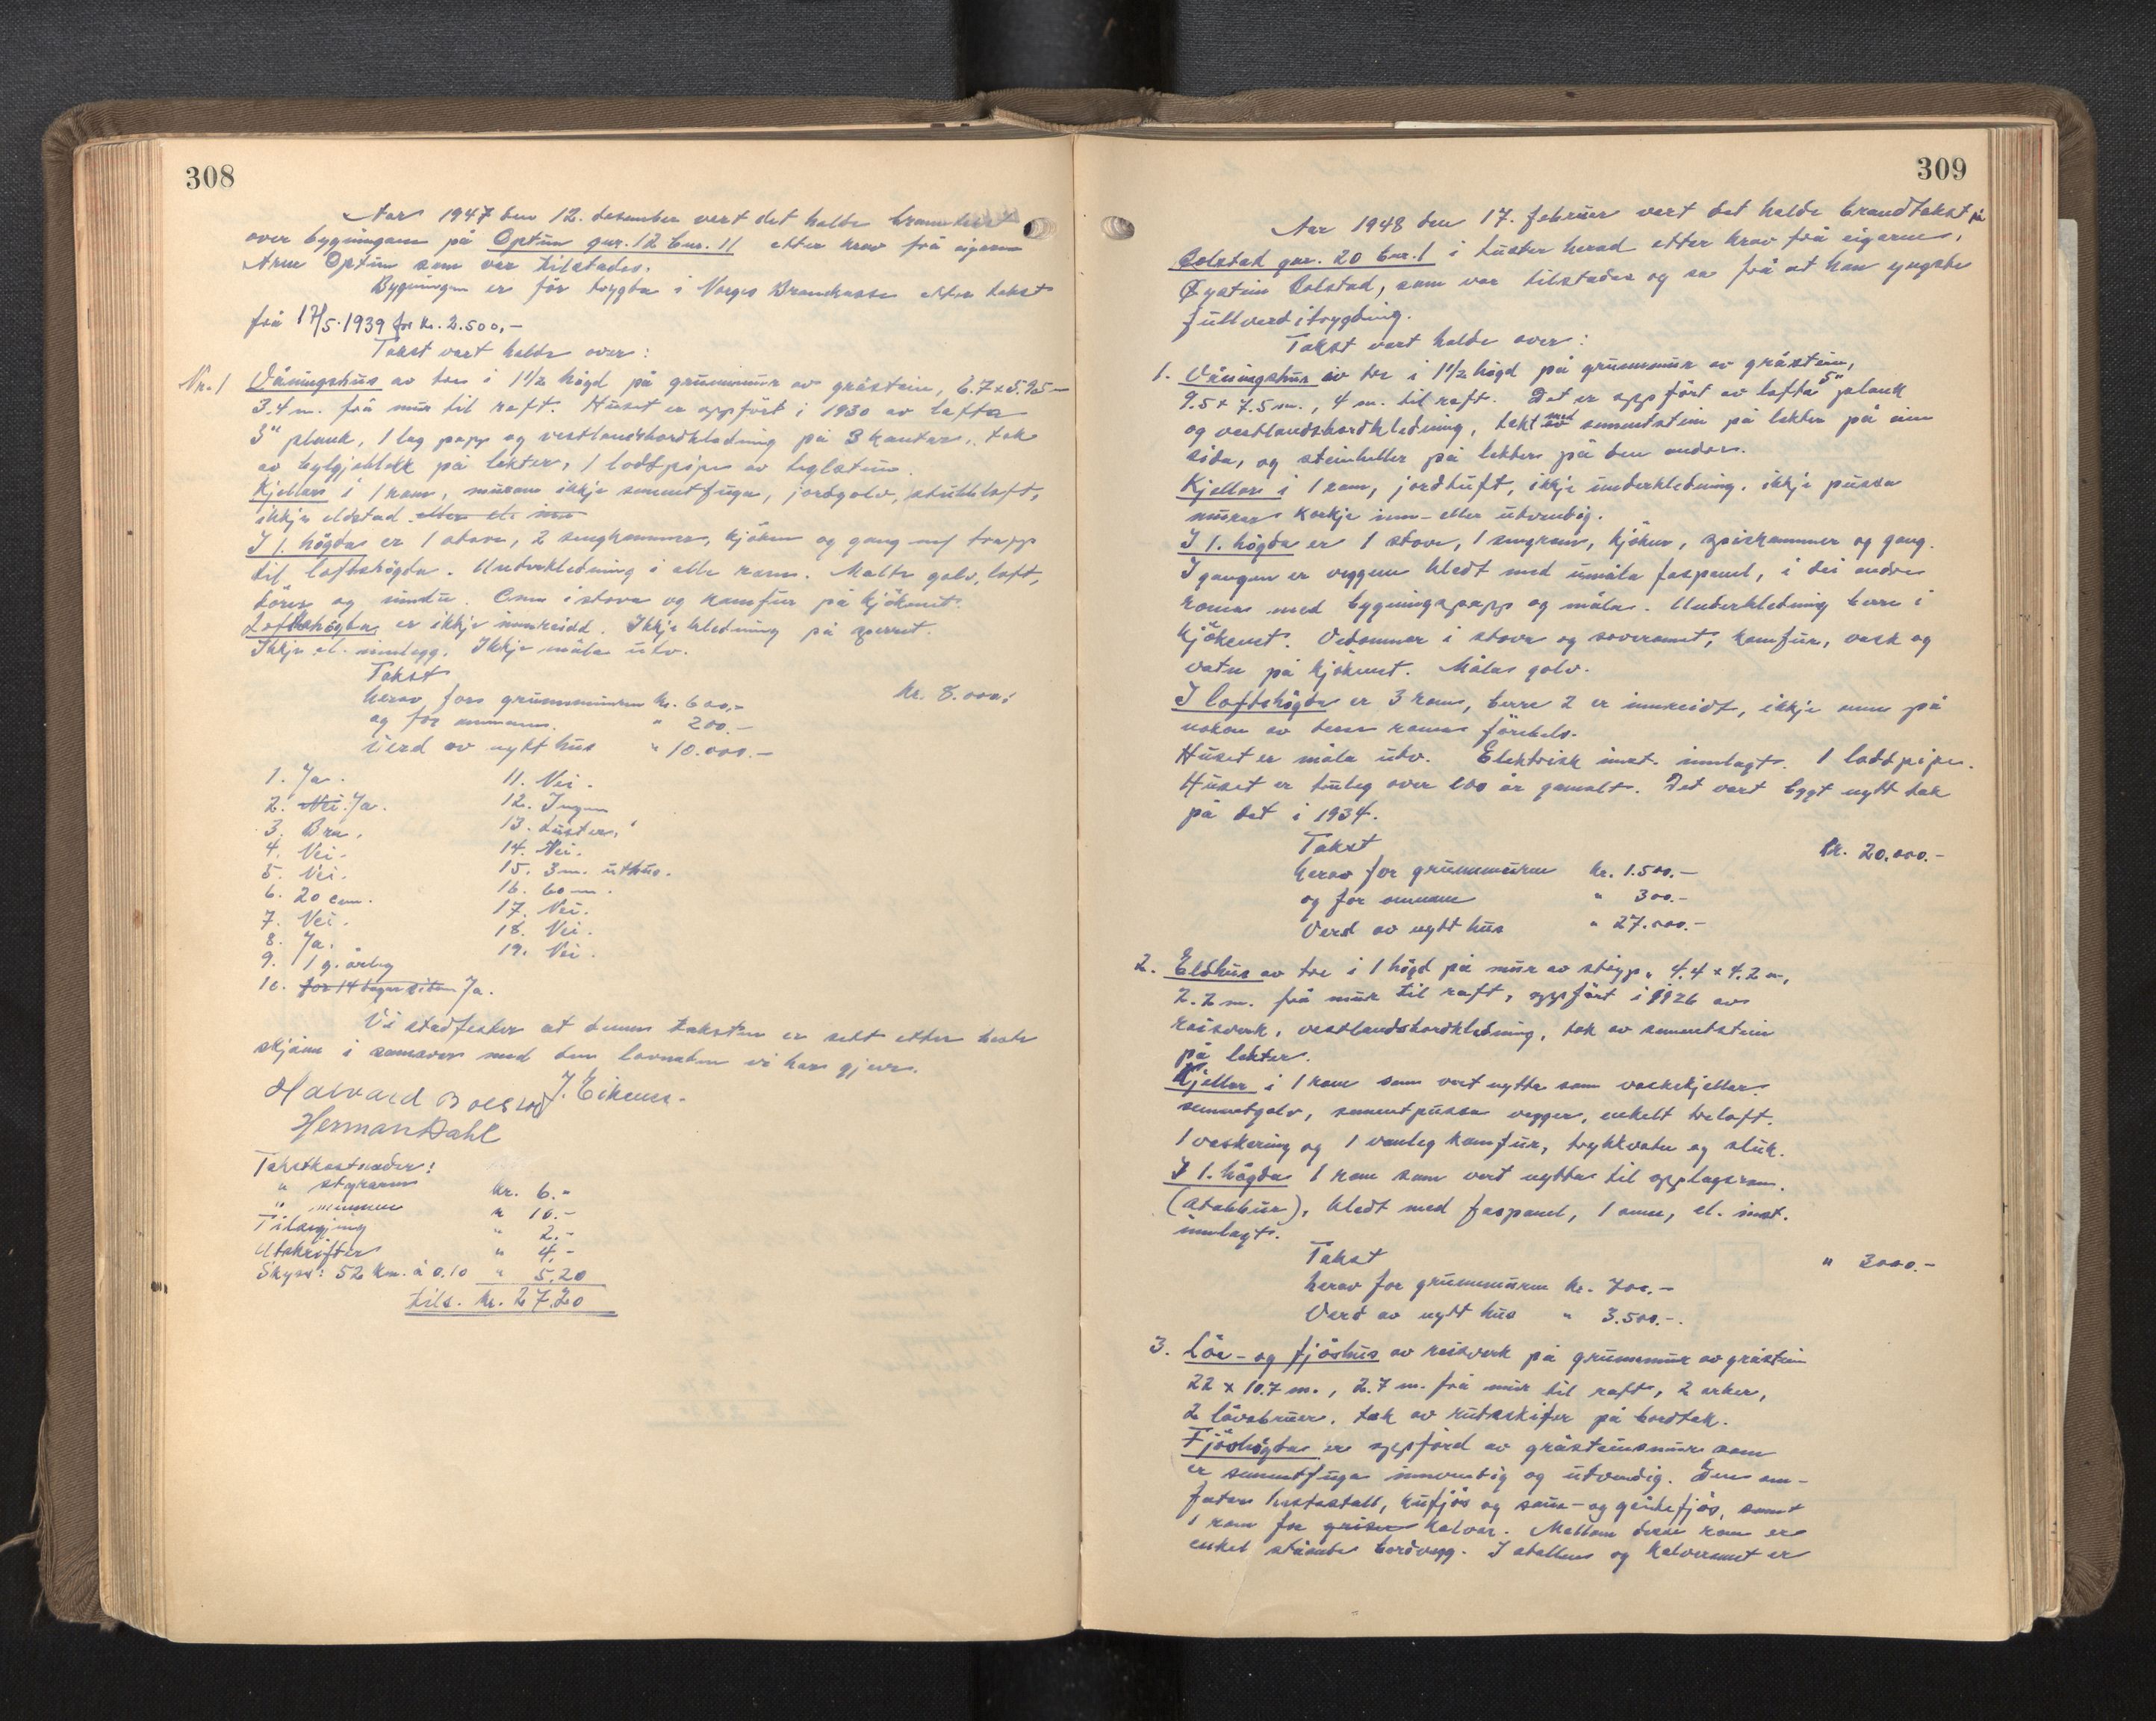 308
Aar 1947 den 12. desember vart det halde branntakst
over bygningane på Optun gnr. 12 bnr. 11 etter krav frå eigaren
Arne Optun som var tilstades.
Bygningen er før trygda i Norges Brannkasse etter takst
frå 17/5.1939 for kr. 2.500,-
Takst vart halde over:
Nr. 1 Våningshus av tre i 1 1/2 høgd på grunnmur av gråstein, 6.7 x 5.95 m
3.4 m. frå mur til raft. Huset er oppført i 1930 av lafta
3" plank, 1 lag papp og vestlandsbordkledning på 3 kantar, tak
av bylgjeblekk på lekter, 1 loddpipe av teglstein.
Kjellar i 1 rom, murane ikkje sementfuga, jordgolv, stubbloft,
ikkje eldstad
I 1. högda er 1 stova, 2 sengkammer, kjöken og gang med trapp
til loftshögda. Underkledning i alle rom. Malte golv, loft,
dörer og vindu. Omn i stova og komfur på kjökenet.
Loftshögda er ikkje innreidd. Ikkje kledning på sperret.
Ikkje el. innlegg. Ikkje måla utv.
Takst kr. 8.000,-
herav for grunnmuren kr. 600,-
og for omnane " 200.-
Verd av nytt hus " 10.000.-
1. Ja. 11. Nei.
2. Nei. Ja. 12. Ingen
3. Bra. 13. Luster.
4. Nei. 14. Nei.
5. Nei. 15. 3 m. uthus.
6. 20 cm. 16. 60 m.
7. Nei. 17. Nei.
8. Ja. 18. Nei.
9. 1 g. årleg 19. Nei.
10. for 14 dagar siden Ja.
Vi stadfester at denne taksten er sett etter beste
skjönn i samsvar med den lovnaden vi har gjeve.
Halvard Bolstad J. Eikenes.
Herman Dahl
Takstkostnader:
" styraren kr. 6.-
" mennene " 10.-
Tilsigjing " 2.-
Utskrifter " 4.-
Skyss: 52 km. à 0.10 " 5.20
tils. kr. 27.20
309
Aar 1948 den 17. februar vart det halde brandtakst på
Bolstad gnr. 20 bnr. 1 i Luster herad etter krav frå eigaren,
Øystein Bolstad, som var tilstades og sa frå at han yngste
fullverditrygding.
Takst vart halde over:
1. Våningshus av tre i 1 1/2 högd på grunnmur av gråstein,
9.5 x 7.5 m., 4 m. til raft. Det er oppfört av lafta 5" plank
og vestlandsbordkledning, tekt med sementstein på lekter på ein
side, og steinheller på lekter på den andre.
Kjellar i 1 rom, jordtuft, ikkje underkledning, ikkje pussa
murar korkje inn- eller utvendig.
I 1. högda er 1 stove, 1 sengrom, kjöken, spiskammer og gang.
I gangen er veggene kledt med umåla faspanel, i dei andre
roma med bygningspapp og måla. Underkledning berre i
kjökenet. Vedomner i stova og soveromet, komfur, vask og
vatn på kjökenet. Målar golv.
I loftshögda er 3 rom, berre 2 er innreidt, ikkje omn på
nokon av desse roma förebels.
Huset er måla utv. Elektrisk inst. innlagt. 1 loddpipe.
Huset er truleg over 100 år gamalt. Det vart bygt nytt tak
på det i 1934.
Takst kr. 20.000.-
herav for grunnmuren kr. 1.500.-
og for omnane " 300.-
Verd av nytt hus " 27.000.-
2. Eldhus av tre i 1 högd på mur av stöyp, 4.4 x 4.2 m,
2.2 m. frå mur til raft, oppfört i 1926 av
reisverk, vestlandsbordkledning, tak av sementstein
på lekter.
Kjellar i 1 rom som vert nytta som vaskekjellar.
sementgolv, sementpussa vegger, enkelt treloft.
1 vaskering og 1 vanleg komfur, trykkvatn og sluk.
I 1. högda 1 rom som vert nytta til opplagsrom.
(stabbur), kledt med faspanel, 1 omn, el. inst.
innlagt.
Takst " 3000.-
herav for grunnmuren kr. 700.-
Verd av nytt hus " 3.500.-
3. Löe- og fjöshus av reisverk på grunnmur av gråstein
22 x 10.7 m., 2.7 m. frå mur til raft, 2 arker,
2 låvebruer. tak av rutaskifer på bordtak.
Fjöshögda er oppförd av gråsteinsmur som
er sementfuga innvendig og utvendig. Den om-
fatar hestestall, kufjös og saue- og geitefjös, samt
1 rom for griser kalver. Mellom desse rom er
enkel ståande bordvegg. I stallen og kalveromet er